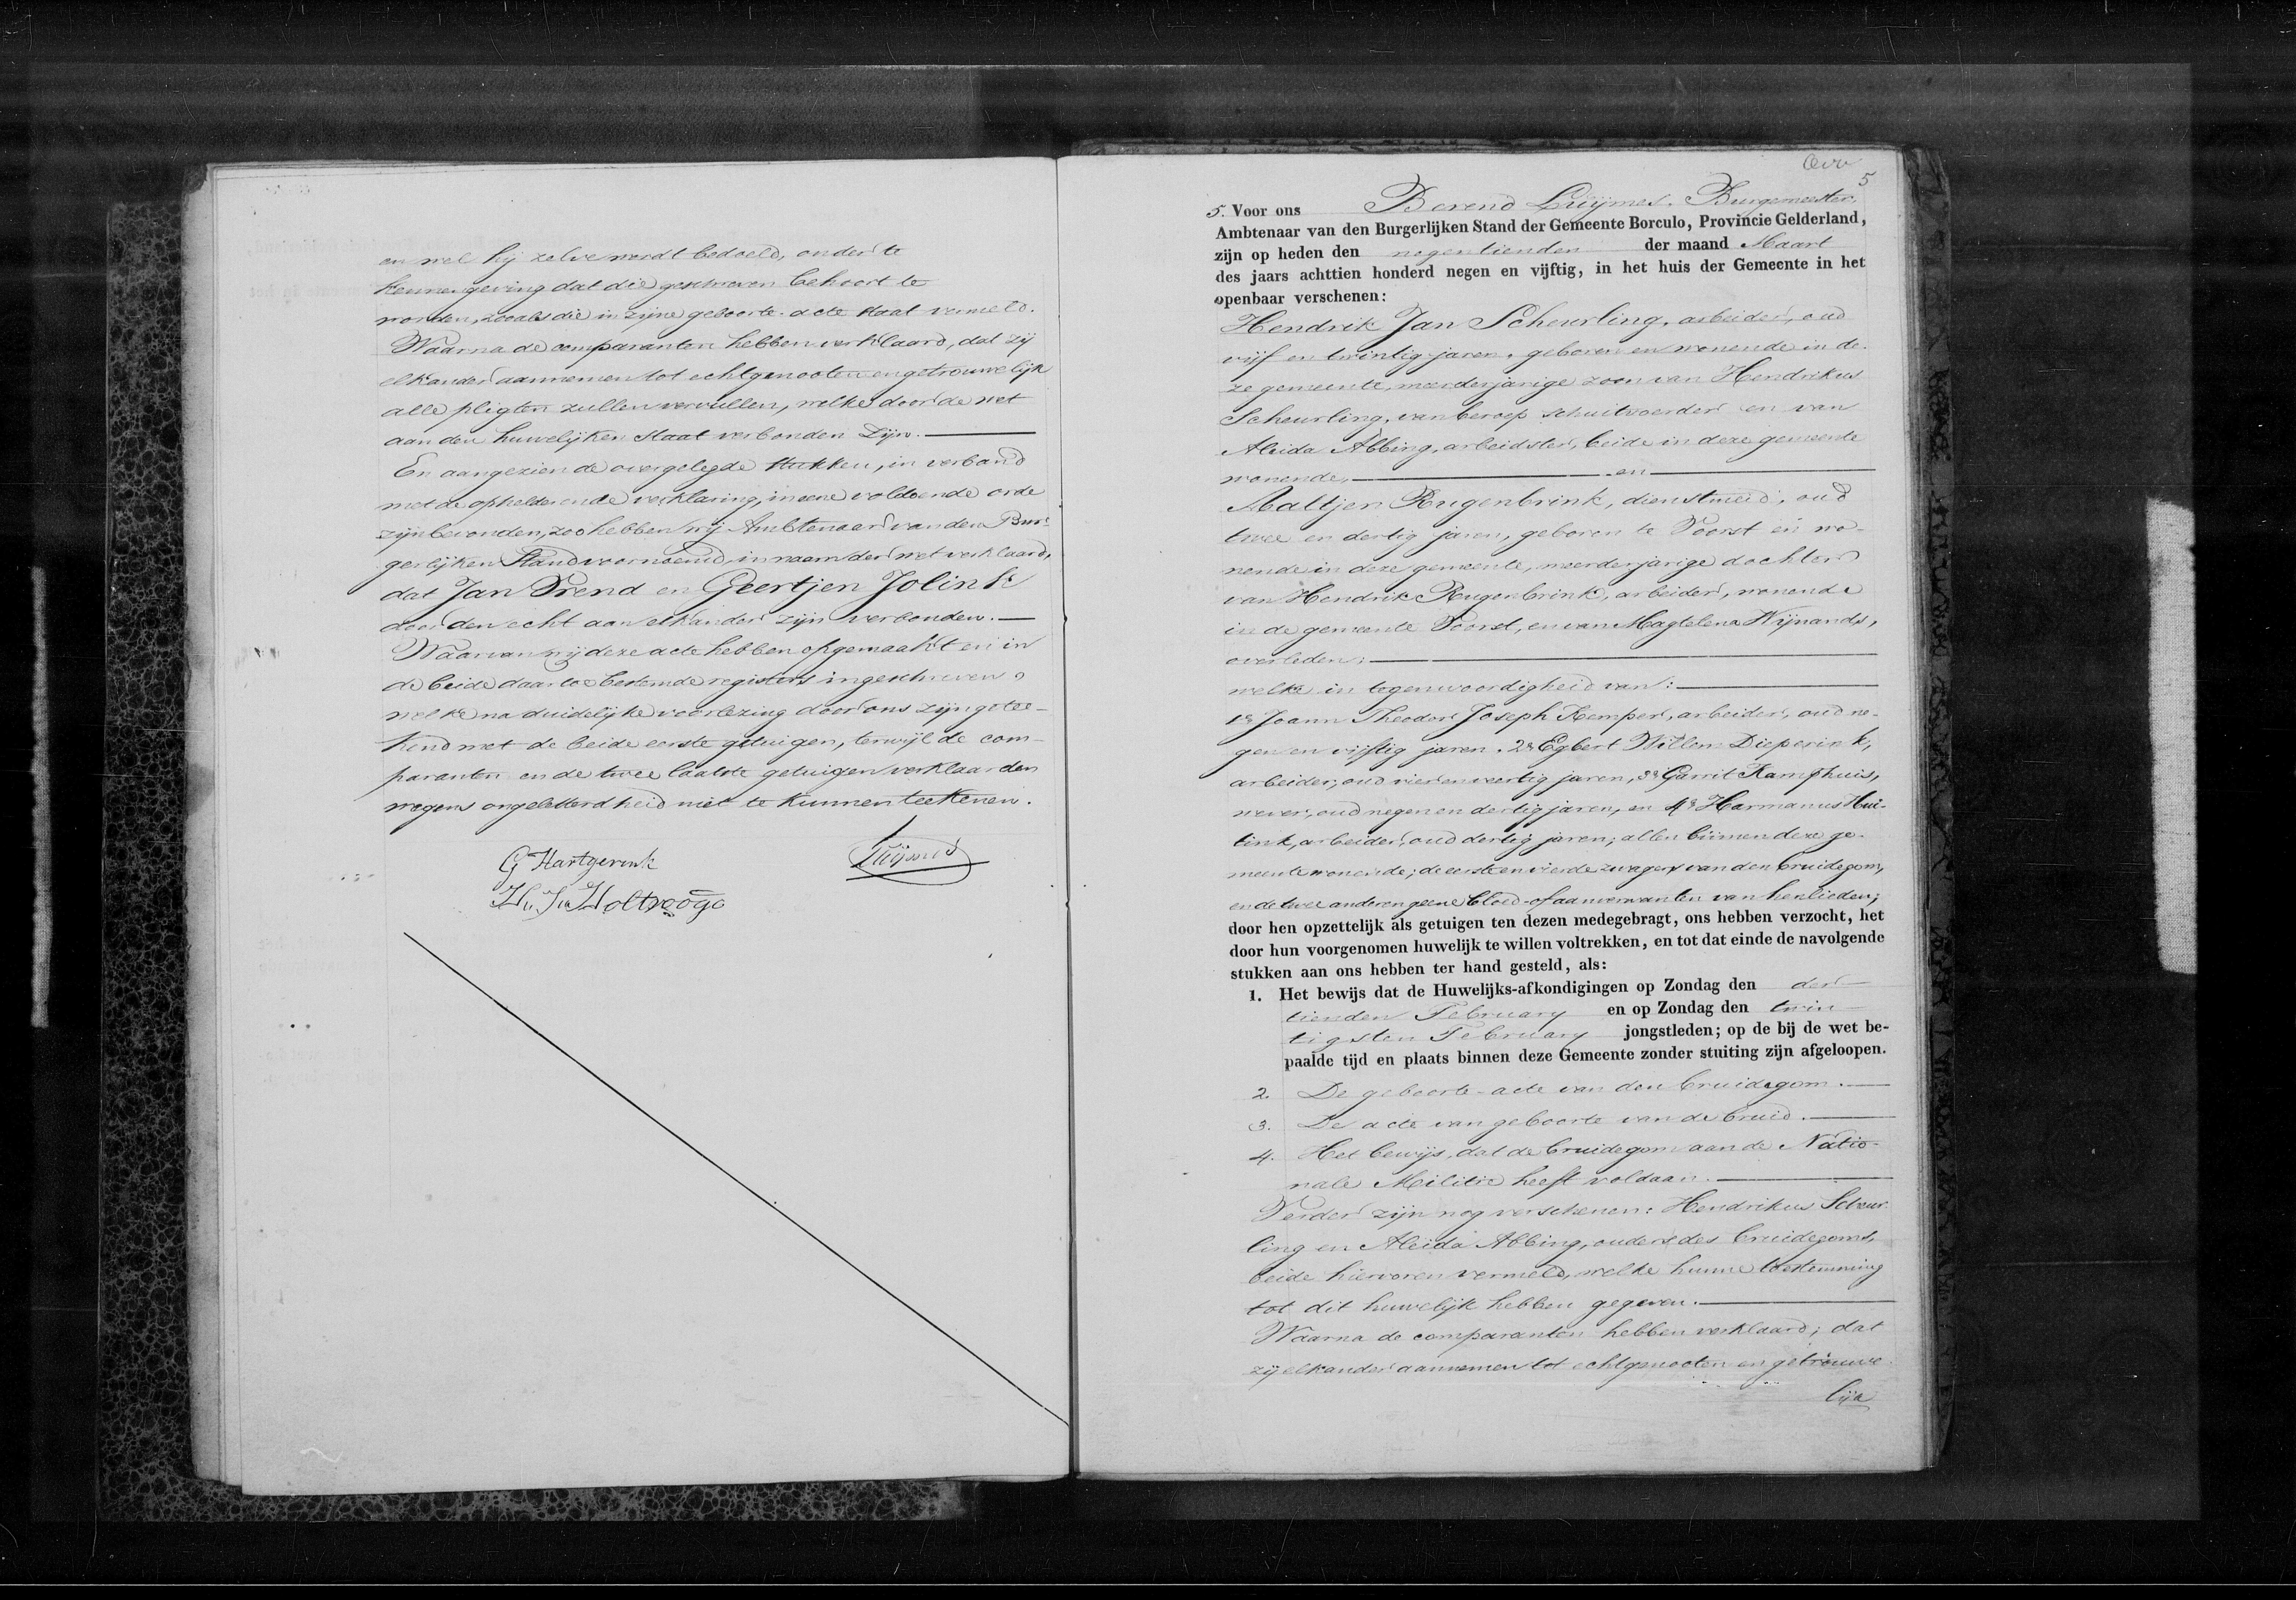 en wel hij zelve werdt bedoeld, onder te
kennengeving dat die geschreven behoort te
worden, zooals die in zijne geboorte-acte staat vermeld.
Waarna de comparanten hebben verklaard, dat zij
elkander aannemen tot echtgenooten en getrouwelijk
alle pligten zullen vervullen, welke door de wet
aan den huwelijken staat verbonden zijn.
En aangezien de overgelegde stukken, in verband
met de ophelderende verklaring, in eene voldoende orde
zijn bevonden, zoo hebben wij Ambtenaar van den Bur-
gerlijken Stand voornoemd, in naam der wet verklaard,
dat Jan Prend en Geertjen Jolink
door den echt aan elkander zijn verbonden.
Waarvan wij deze acte hebben opgemaakt en in
de beide daartoe bestemde registers ingeschreven,
welke na duidelijke voorlezing door ons zijn getee-
kend met de beide eerste getuigen, terwijl de com-
paranten en de twee laatste getuigen verklaarden
wegens ongeletterdheid niet te kunnen teekenen.
G Hartgerink
Luijmes
H. J. Holtrooge
5
5. Voor ons Berend Luijmes, Burgemeester,
Ambtenaar van den Burgerlijken Stand der Gemeente Borculo, Provincie Gelderland,
zijn op heden den negentienden der maand Maart
des jaars achttien honderd negen en vijftig, in het huis der Gemeente in het
openbaar verschenen:
Hendrik Jan Scheurling, arbeider, oud
vijf en twintig jaren, geboren en wonende in de-
ze gemeente, meerderjarige zoon van Hendrikus
Scheurling, van beroep schuitvoerder en van
Aleida Abbing, arbeidster, beide in deze gemeente
wonende, en
Aaltjen Rugenbrink, dienstmeid, oud
twee en dertig jaren, geboren te Voorst en wo-
nende in deze gemeente, meerderjarige dochter
van Hendrik Rugenbrink, arbeider, wonende
in de gemeente Voorst, en van Magtelena Wijnands,
overleden;
welke in tegenwoordigheid van:
1e Joann Theodor Joseph Kemper, arbeider, oud ne-
gen en vijftig jaren. 2e Egbert Willem Dieperink,
arbeider, oud vier en veertig jaren, 3e Garrit Kamphuis,
wever, oud negen en dertig jaren, en 4e Harmanus Hui-
tink, arbeider, oud dertig jaren; allen binnen deze ge-
meente wonende; de eerste en vierde zwagers van den bruidegom,
en de twee anderen geene bloed- of aanverwanten van henlieden;
door hen opzettelijk als getuigen ten dezen medegebragt, ons hebben verzocht, het
door hun voorgenomen huwelijk te willen voltrekken, en tot dat einde de navolgende
stukken aan ons hebben ter hand gesteld, als:
1. Het bewijs dat de Huwelijks-afkondigingen op Zondag den der-
tienden February en op Zondag den twin-
tigsten February jongstleden; op de bij de wet be-
paalde tijd en plaats binnen deze Gemeente zonder stuiting zijn afgeloopen.
2. De geboorte-acte van den bruidegom.
3. De acte van geboorte van de bruid.
4. Het bewijs, dat de bruidegom aan de Natio-
nale Militie heeft voldaan.
Verder zijn nog verschenen: Hendrikus Scheur-
ling en Aleida Abbing, ouders des bruidegoms,
beide hiervoren vermeld, welke hunne toestemming
tot dit huwelijk hebben gegeven.
Waarna de comparanten hebben verklaard; dat
zij elkander aannemen tot echtgenooten en getrouwe-
lijk